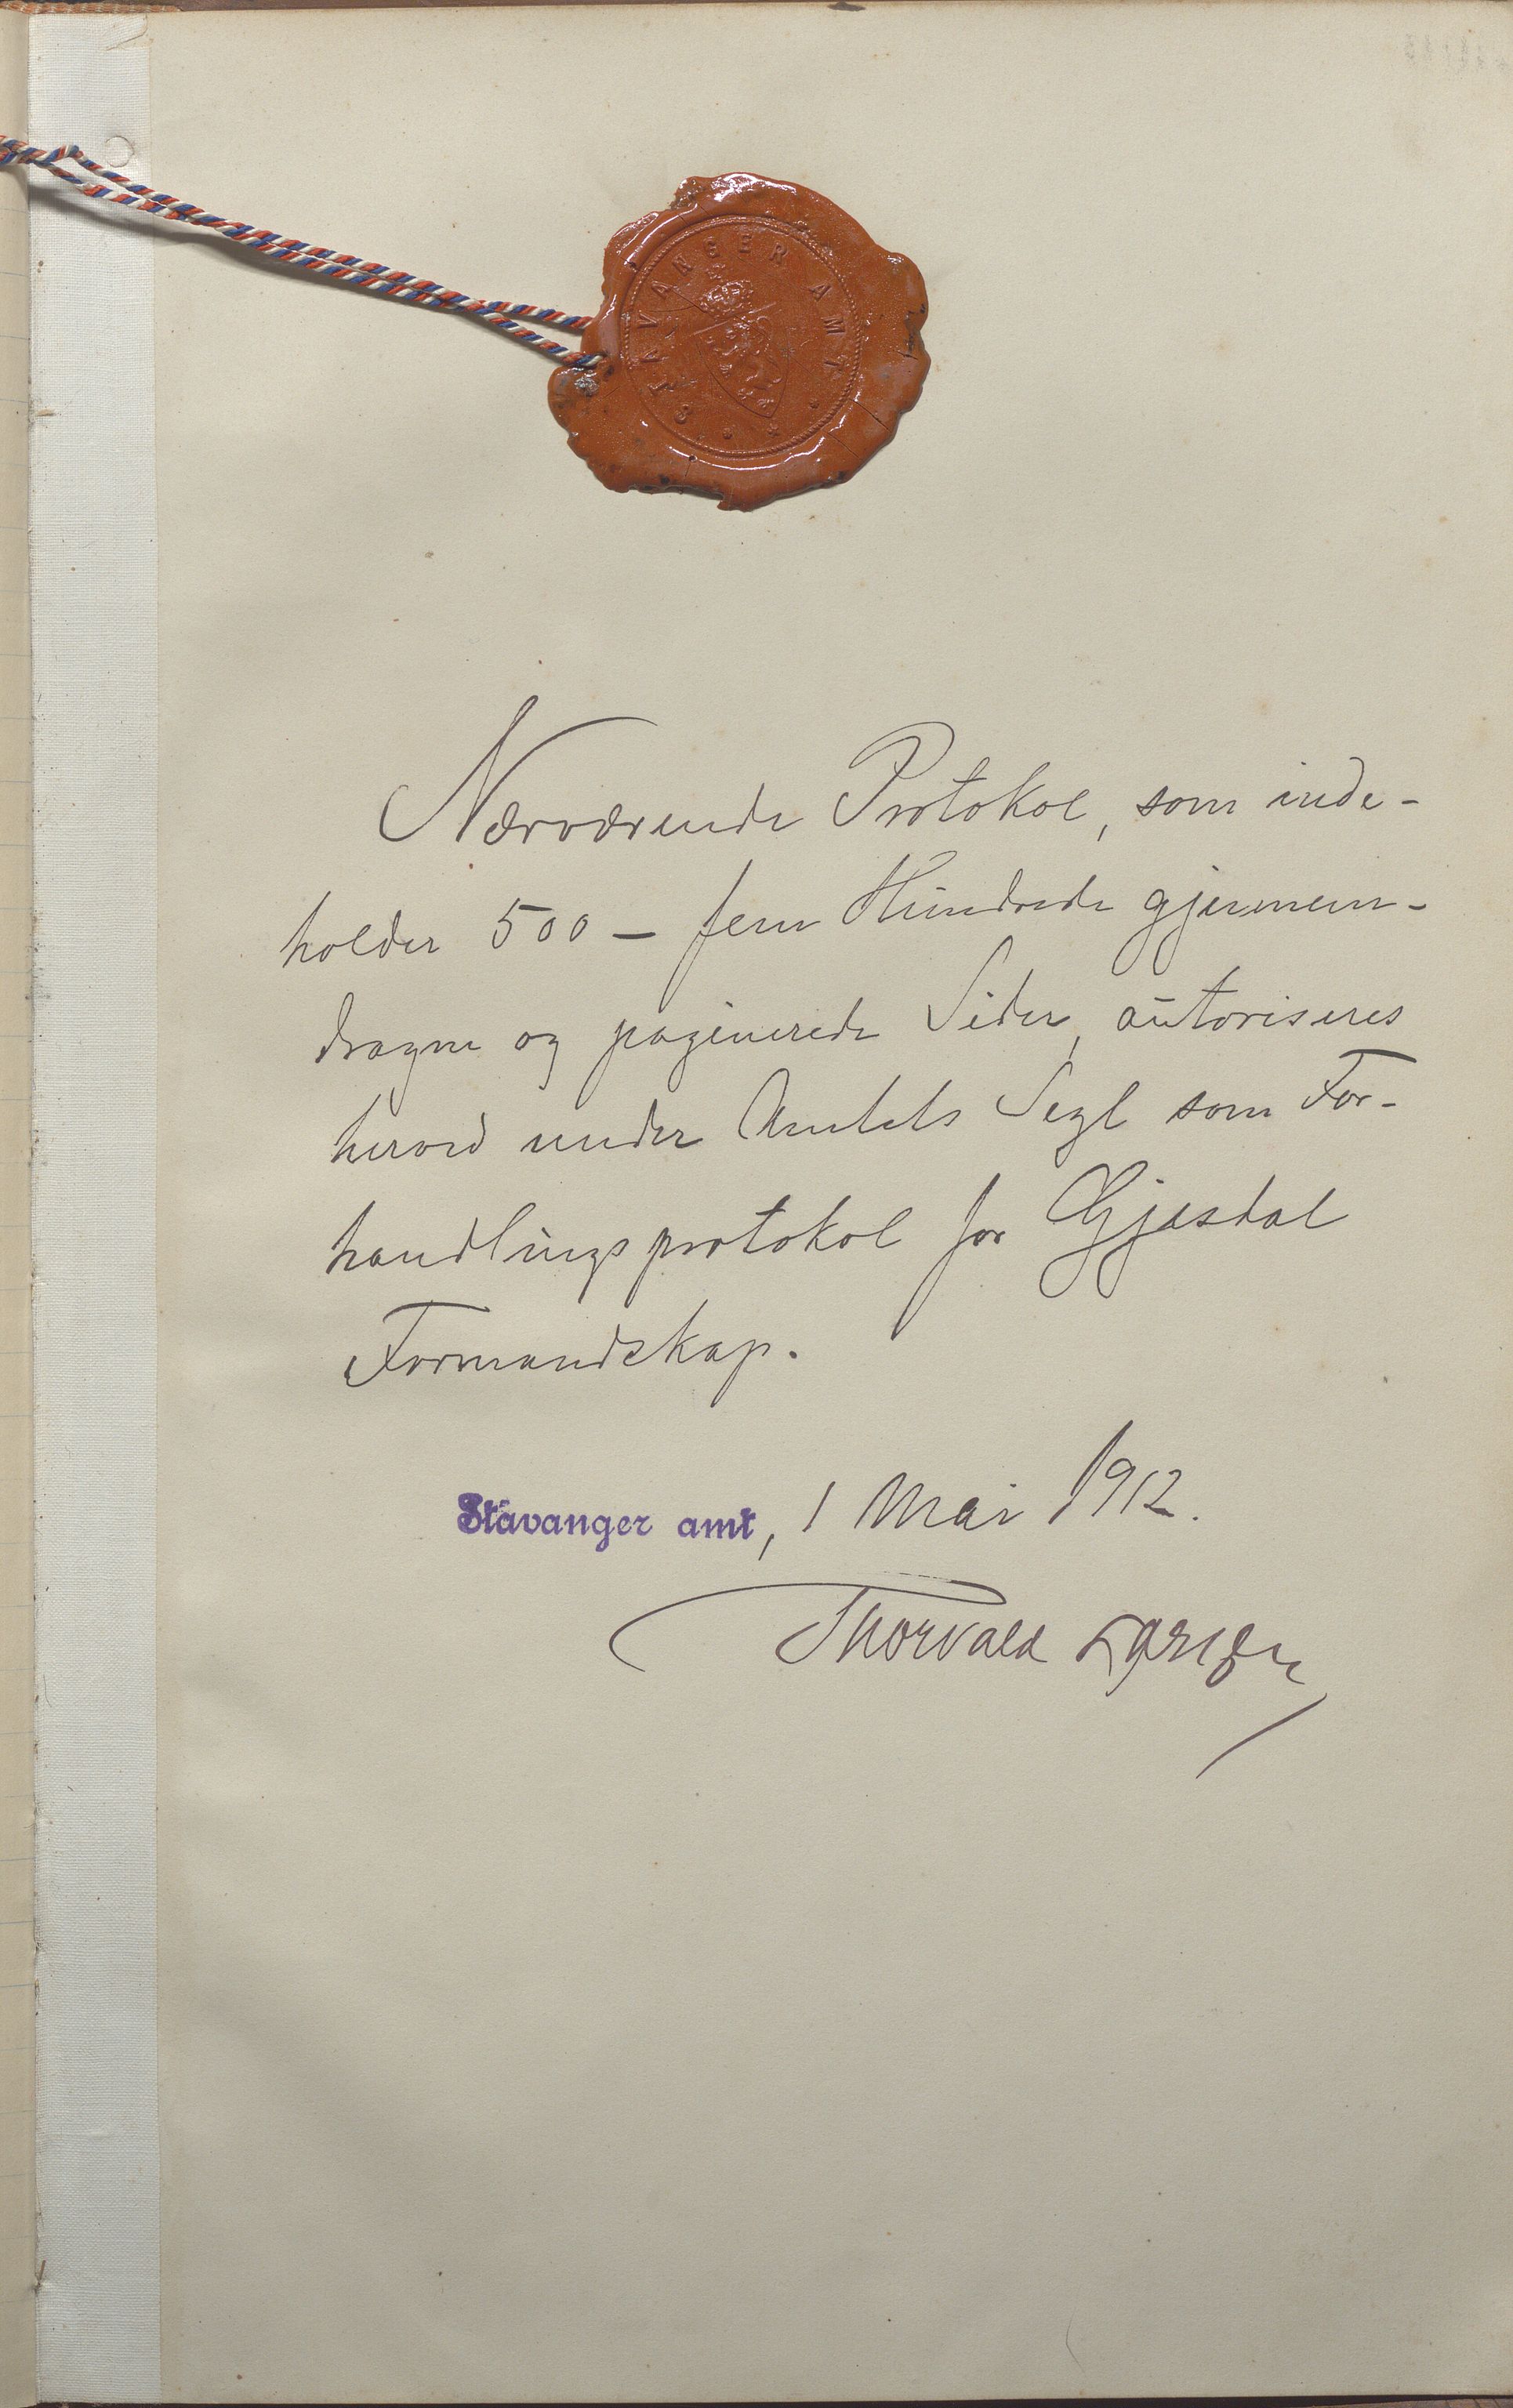 STAVANGER AMT
Nærværende Protokol, som inde-
holder 500 - fem Hundrede gjennem-
dragne og paginerede Sider, autoriseres
herved under Amtets Segl som For-
handlingsprotokol for Gjesdal
Formandskap.
Stavanger amt, 1 Mai 1912.
Thorvald Larsen